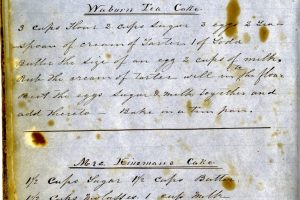 Woburn Tea Cake
3 cups Flour 2 cups Sugar 3 eggs 2 Tea-
spoon of cream of Tarter 1 of Soda
Butter the size of an egg 2 cups of milk.
Rub the cream of Tarter well in the flour
Beat the eggs Sugar & milk together and
add thereto — Bake in a tin pan.
Mrs. Kinsman's Cake
1½ Cups Sugar 1½ cups Butter
1½ Cups Molasses 1 cup Milk